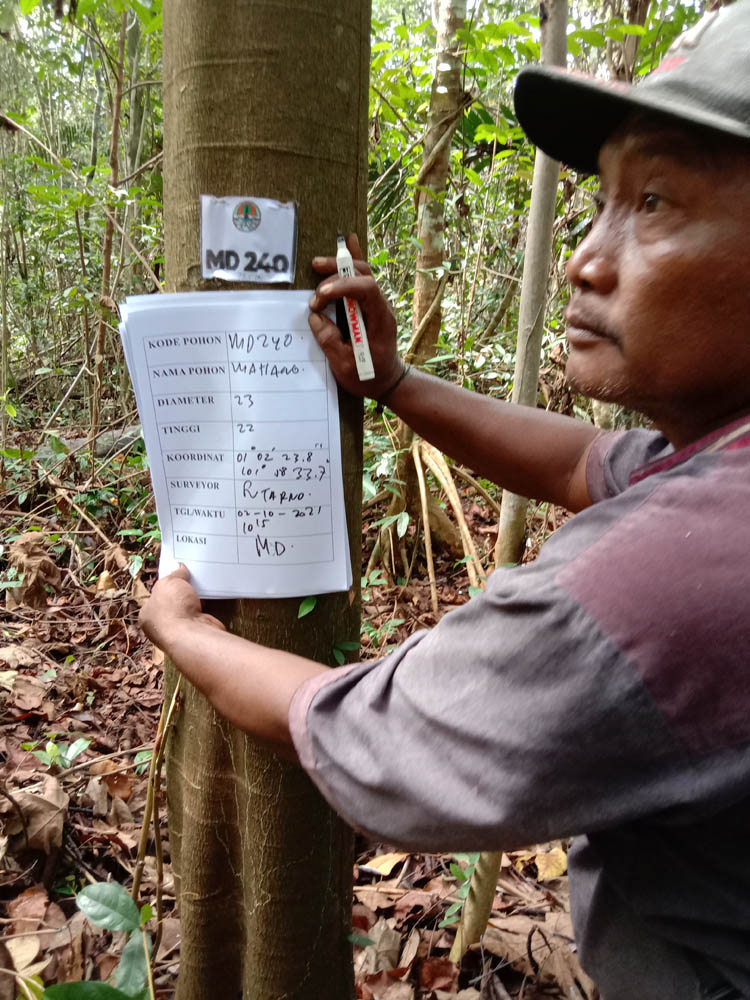 MD 240
KODE POHON MD240.
NAMA POHON MAHANG.
DIAMETER 23
TINGGI 22
KOORDINAT 01° 02' 23.8"
101° 58 33.7
SURVEYOR R TARNO.
TGL/WAKTU 02-10-2021
1015
LOKASI M.D.
SNOWMAN